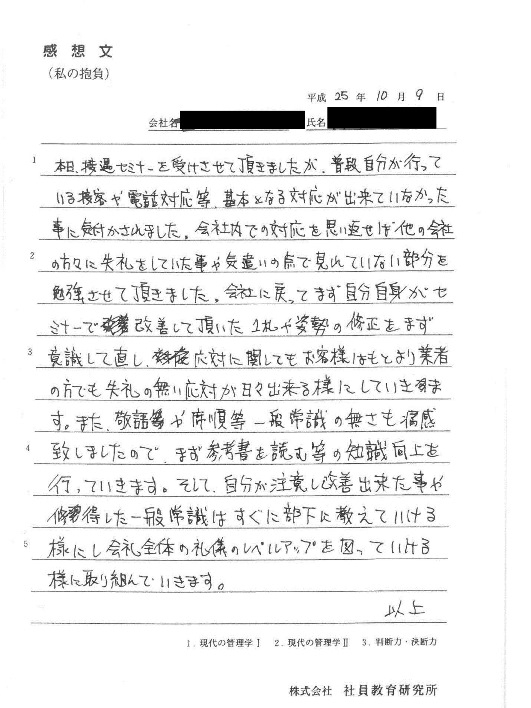 感想文
(私の抱負)
平成 25 年 10 月 9 日
会社名 氏名
1 本日、接遇セミナーを受けさせて頂きましたが、普段自分が行って
いる接客や電話対応等、基本となる対応が出来ていなかった
事に気付かされました。会社内での対応を思い返せば他の会社
2 の方々に失礼をしていた事や気遣いの点で見れていない部分を
勉強させて頂きました。会社に戻ってまず自分自身がセ
ミナーで改善して頂いた礼や姿勢の修正をまず
3 意識して直し、応対に関してもお客様はもとより業者
の方でも失礼の無い応対が日々出来る様にしていきま
す。また、敬語や席順等一般常識の無さも痛感
4 致しましたので、まず参考書を読む等の知識向上を
行っていきます。そして、自分が注意し改善出来た事や
習得した一般常識はすぐに部下に教えていける
5 様にし会社全体の礼儀のレベルアップを図っていける
様に取り組んでいきます。
以上
1. 現代の管理学Ⅰ 2. 現代の管理学Ⅱ 3. 判断力・決断力
株式会社 社員教育研究所